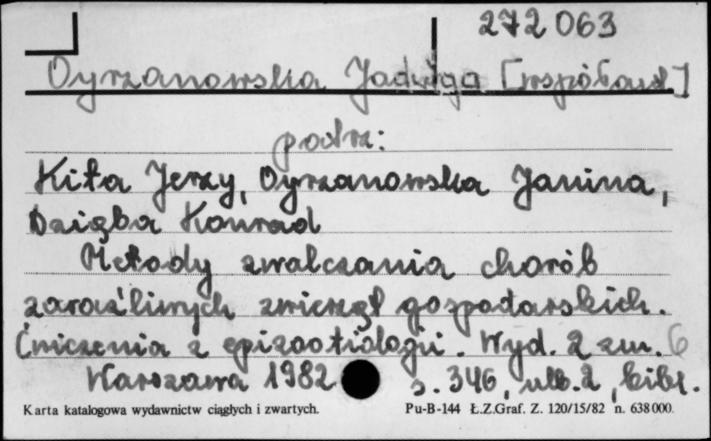 272 063
Dyrzanowska Jadwiga [współaut]
patrz:
Kita Jerzy, Dyrzanowska Janina,
Dziąba Konrad
Metody zwalczania chorób
zaraźliwych zwierząt gospodarskich.
Ćwiczenia z epizootiologii. Wyd. 2 zm. 6
Warszawa 1982 s. 346, nlb. 2, bibl.
Karta katalogowa wydawnictw ciągłych i zwartych. Pu-B-144 Ł.Z.Graf. Z. 120/15/82 n. 638000.